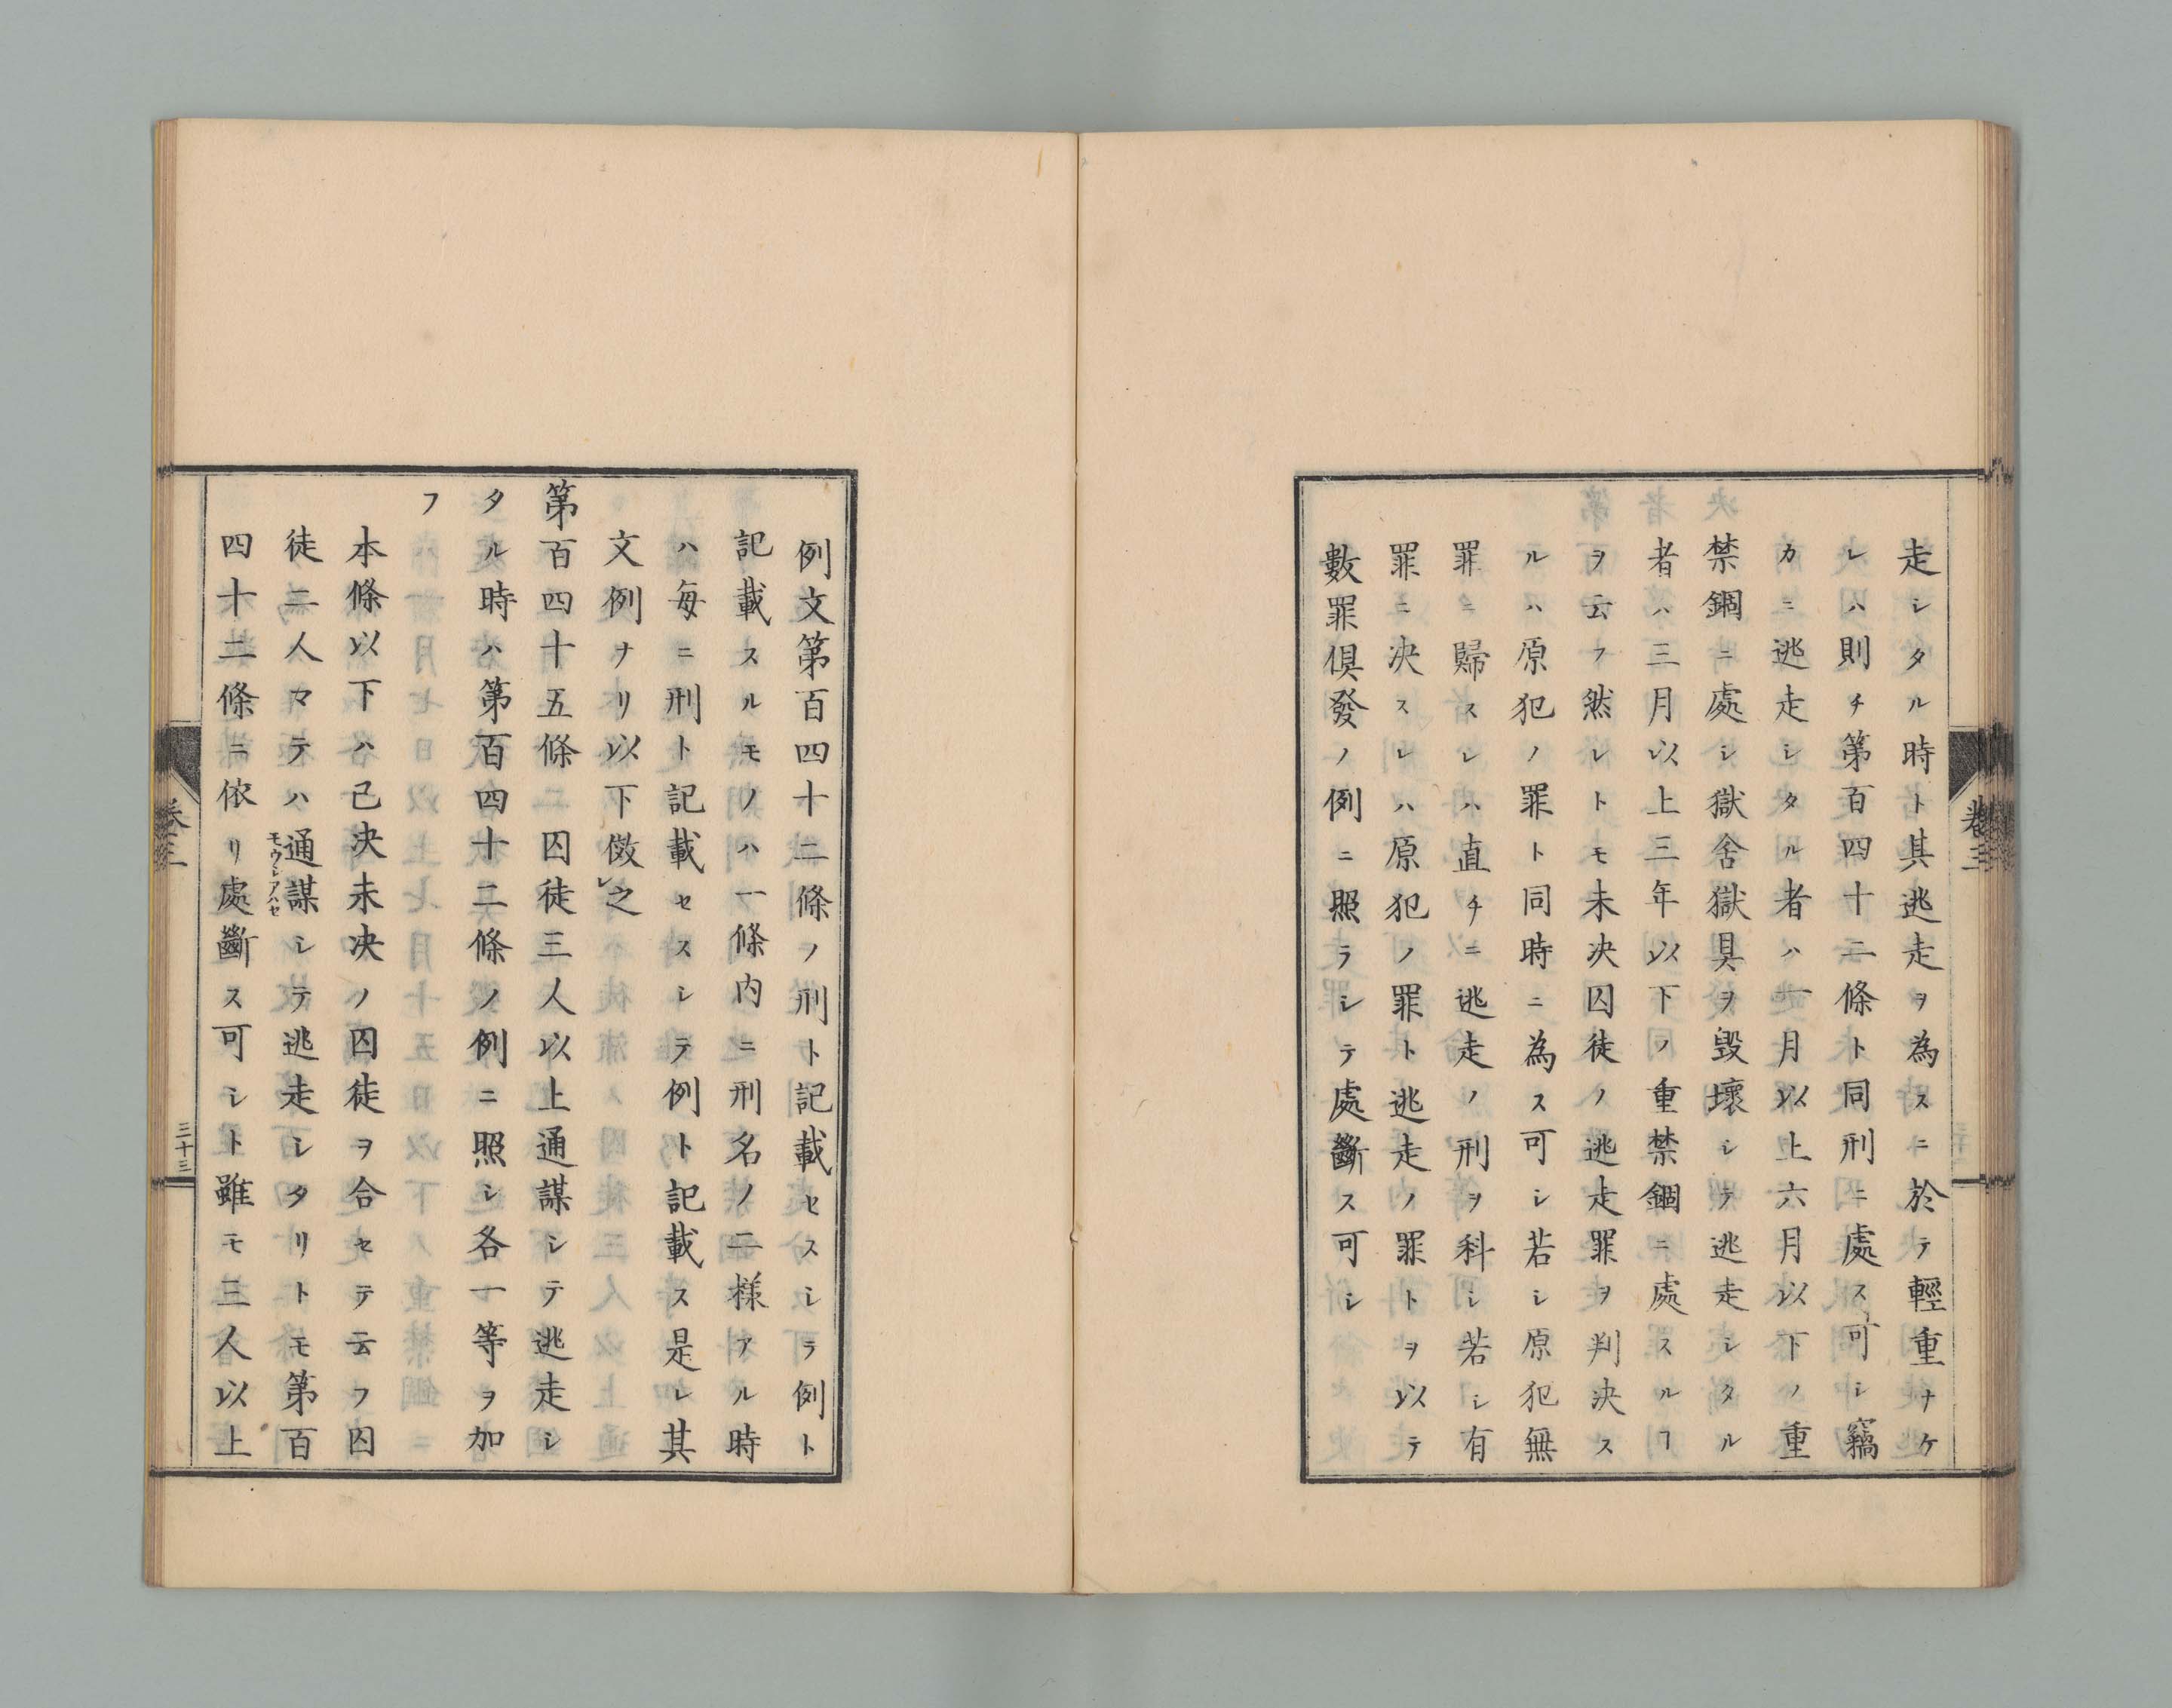 走シタル時ト其逃走ヲ為スニ於テ輕重ナケ
レハ則チ第百四十二條ト同刑ニ處ス可シ竊
カニ逃走シタル者ハ一月以上六月以下ノ重
禁錮ニ處シ獄舍獄具ヲ毀壞シテ逃走シタル
者ハ三月以上三年以下ノ重禁錮ニ處スルヿ
ヲ云フ然レトモ未決囚徒ノ逃走罪ヲ判決ス
ルハ原犯ノ罪ト同時ニ為ス可シ若シ原犯無
罪ニ歸スレハ直チニ逃走ノ刑ヲ科シ若シ有
罪ニ決スレハ原犯ノ罪ト逃走ノ罪トヲ以テ
數罪俱發ノ例ニ照ラシテ處斷ス可シ
卷三
例文第百四十二條ノ刑ト記載セスシラ例ト
記載スルモノハ一條内ニ刑名ノ二樣アル時
ハ毎ニ刑ト記載セスシテ例ト記載ス是レ其
文例ナリ以下傚レ之
第百四十五條 囚徒三人以上通謀シテ逃走シ
タル時ハ第百四十二條ノ例ニ照シ各一等ヲ加
フ
本條以下ハ已決未決ノ囚徒ヲ合セテ云フ囚
徒二人マテハ通謀シテ逃走シタリトモ第百
モウシアハセ
四十二條ニ依リ處斷ス可シト雖モ三人以上
卷三
三十三